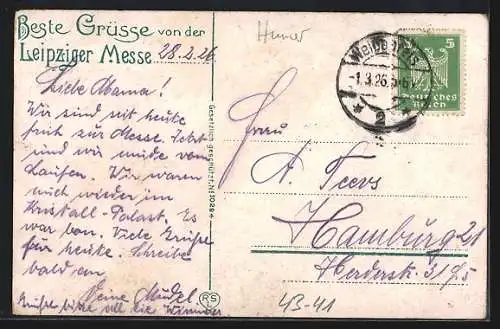 Beste Grüsse von der
Leipziger Messe 28.2.26
Liebe Mama!
Wir sind seit heute
früh zur Messe. Jetzt
sind wir müde vom
Laufen. Wir waren
auch wieder im
Kristall-Palast. Es
war Viele Grüße
für heute. Schreibe
bald an
Deine
Grüße bitte
Gesetzlich geschützt. No
RS
1.3.26.5-6
2
5
Deutsches
Reich
Frau
A. Teevs
Hamburg 21
Herderstr. 31
43-41